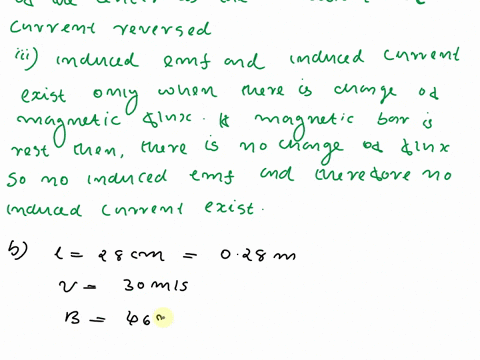 current reversed
iii) induced emf and induced current
exist only when there is change of
magnetic flux. If magnetic bar is
rest then, there is no change of flux
so no induced emf and therefore no
induced current exist.
b) l = 28 cm = 0.28 m
v = 30 m/s
B = 46